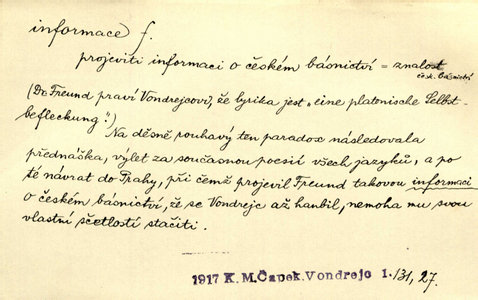 informace f.
projeviti informaci o českém básnictví = znalost
česk. básnictví
(Dr. Freund praví Vondrejcovi, že lyrika jest „eine platonische Selbst-
befleckung“.)
Na děsně rouhavý ten paradox následovala
přednáška, výlet za současnou poesií všech jazyků, a po
té návrat do Prahy, při čemž projevil Freund takovou informaci
o českém básnictví, že se Vondrejc až hanbil, nemoha mu svou
vlastní sčetlostí stačiti.
1917 K. M. Čapek. Vondrejc 1./31, 27.